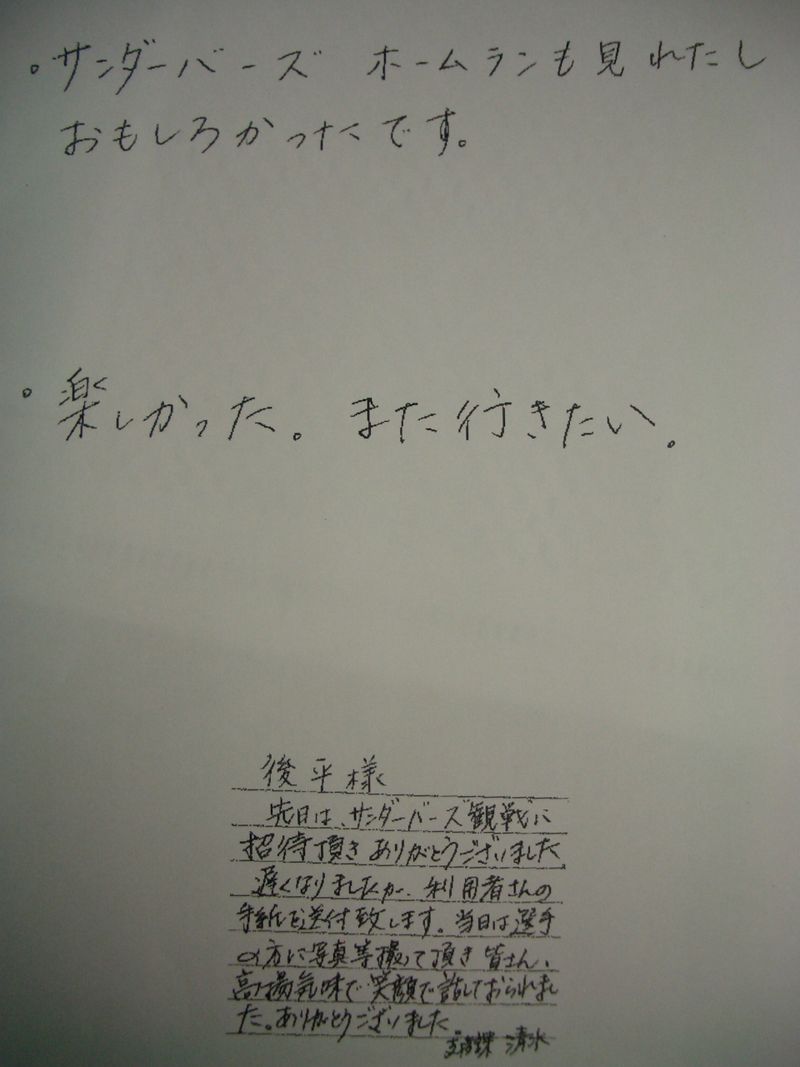 。サンダーバーズ ホームランも見れたし
おもしろかったです。
。楽しかった。また行きたい。
後平様
先日は、サンダーバーズ観戦に
招待頂きありがとうございました
遅くなりましたが、利用者さんの
手紙を送付致します。当日は選手
の方に写真等撮って頂き皆さん、
高揚気味で笑顔で話しておられまし
た。ありがとうございました
清水